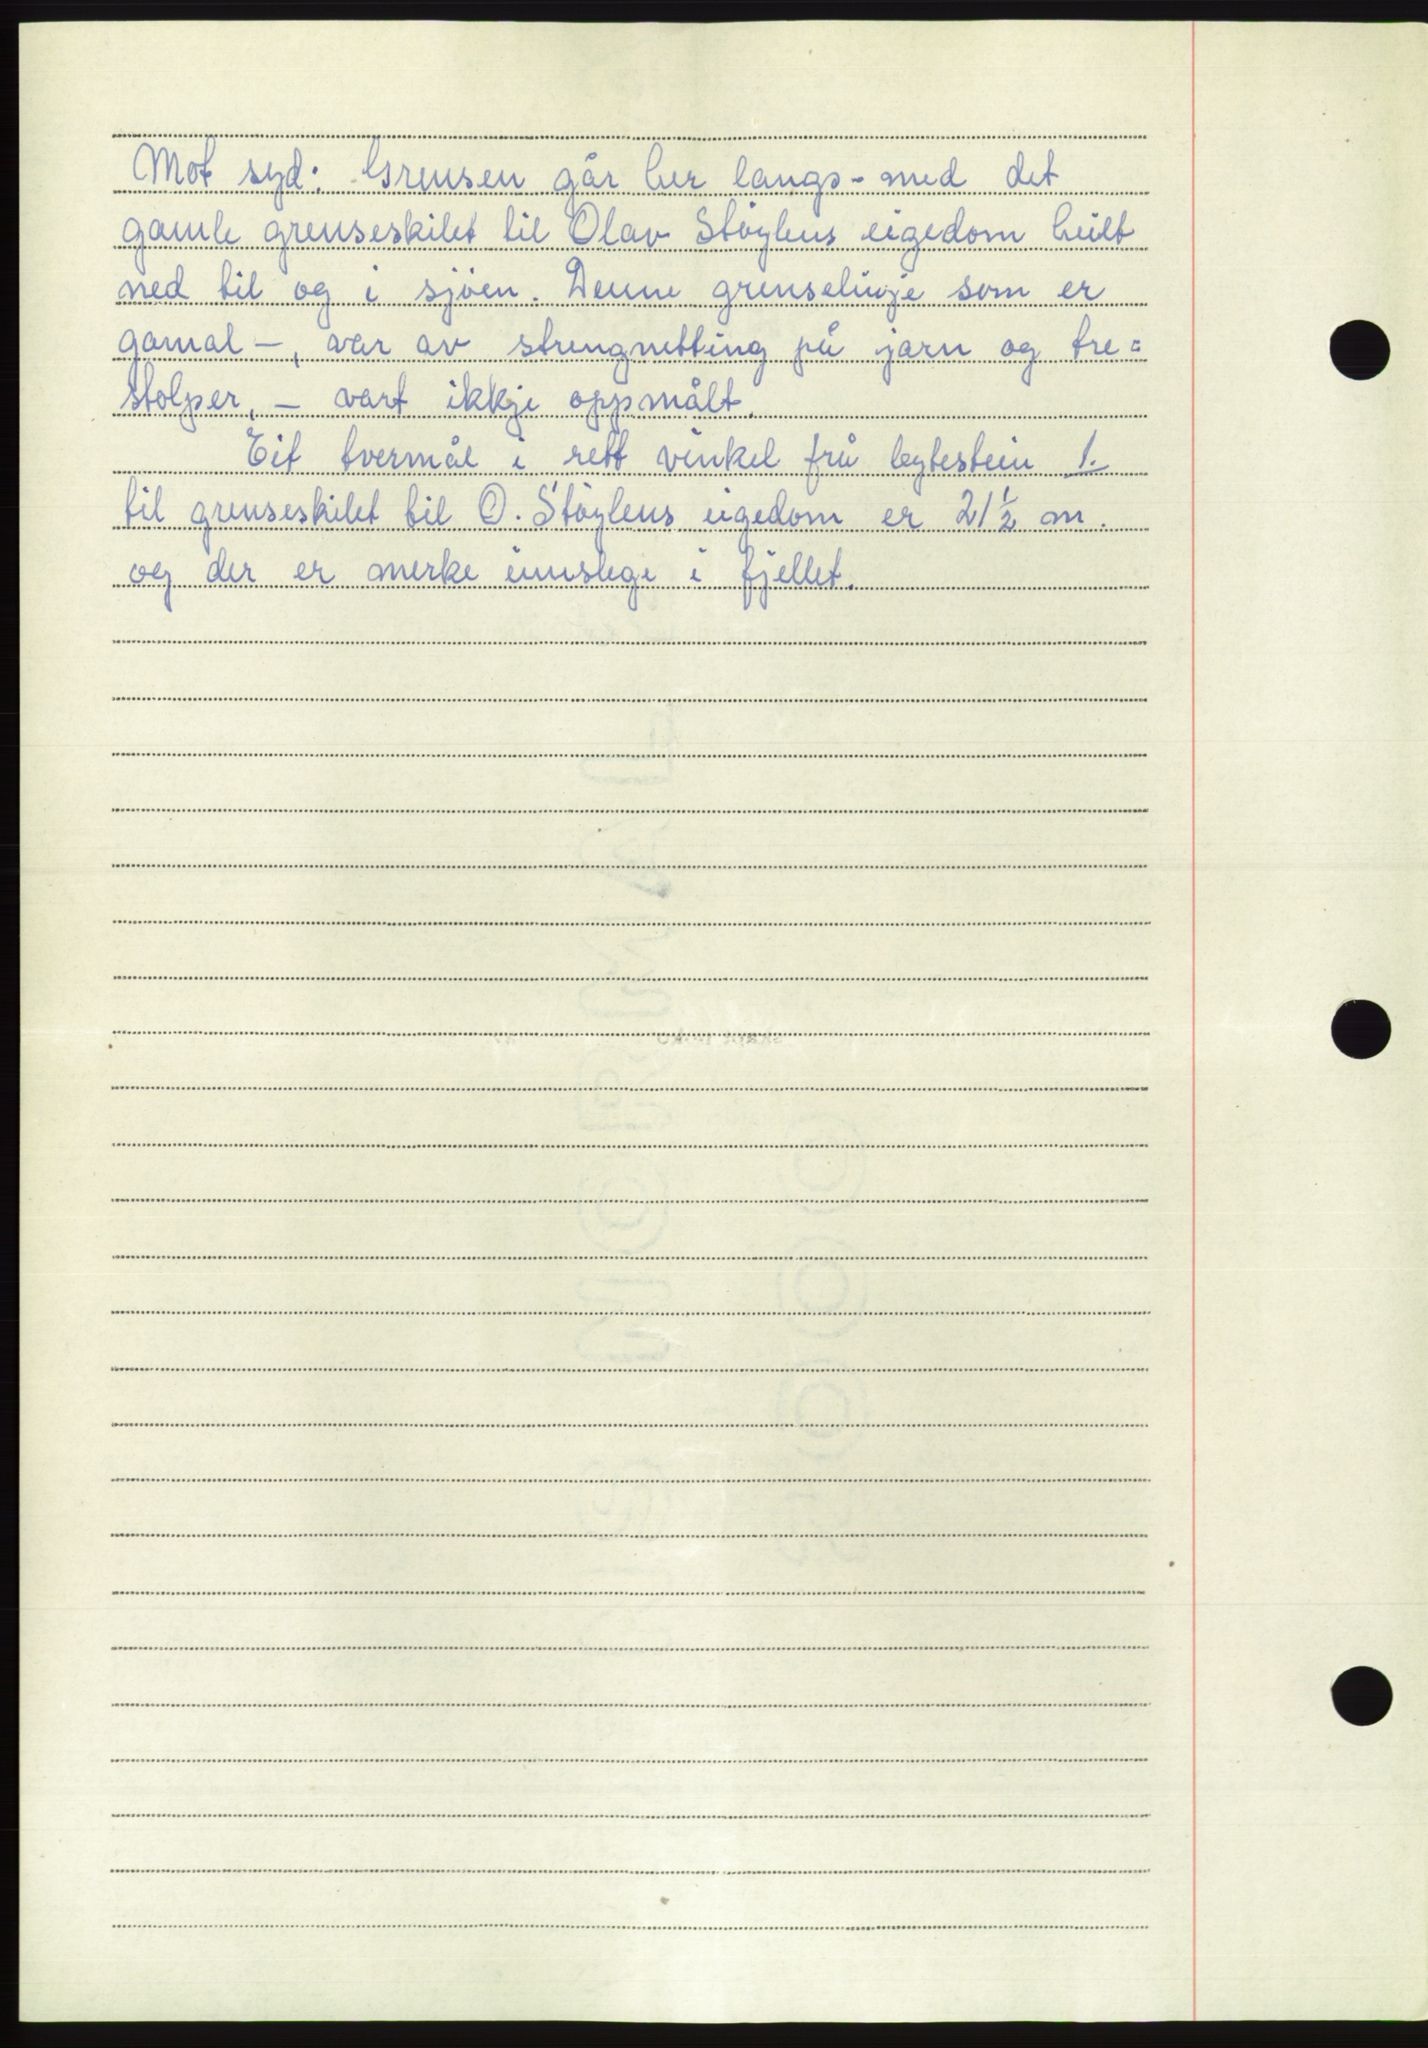 Mot syd: Grensen går her langs-med det
gamle grenseskilet til Olav Støylens eigedom heilt
ned til og i sjøen. Denne grenselinje som er
gamal -, var av strengnetting på jarn og tre=
stolper, - vart ikkje oppmålt.
Eit tvermål i rett vinkel frå bytestein 1.
til grenseskilet til O. Støylens eigedom er 21 1/2 m.
og der er merke innslege i fjellet.